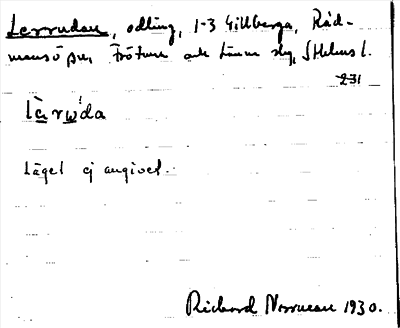 Lerrudan, odling, 1-3 Gillberga, Råd-
mansö sn, Frötuna och Länna slg, Sthlms l.
231
làrwda
Läget ej angivet.
Richard Norrman 1930.